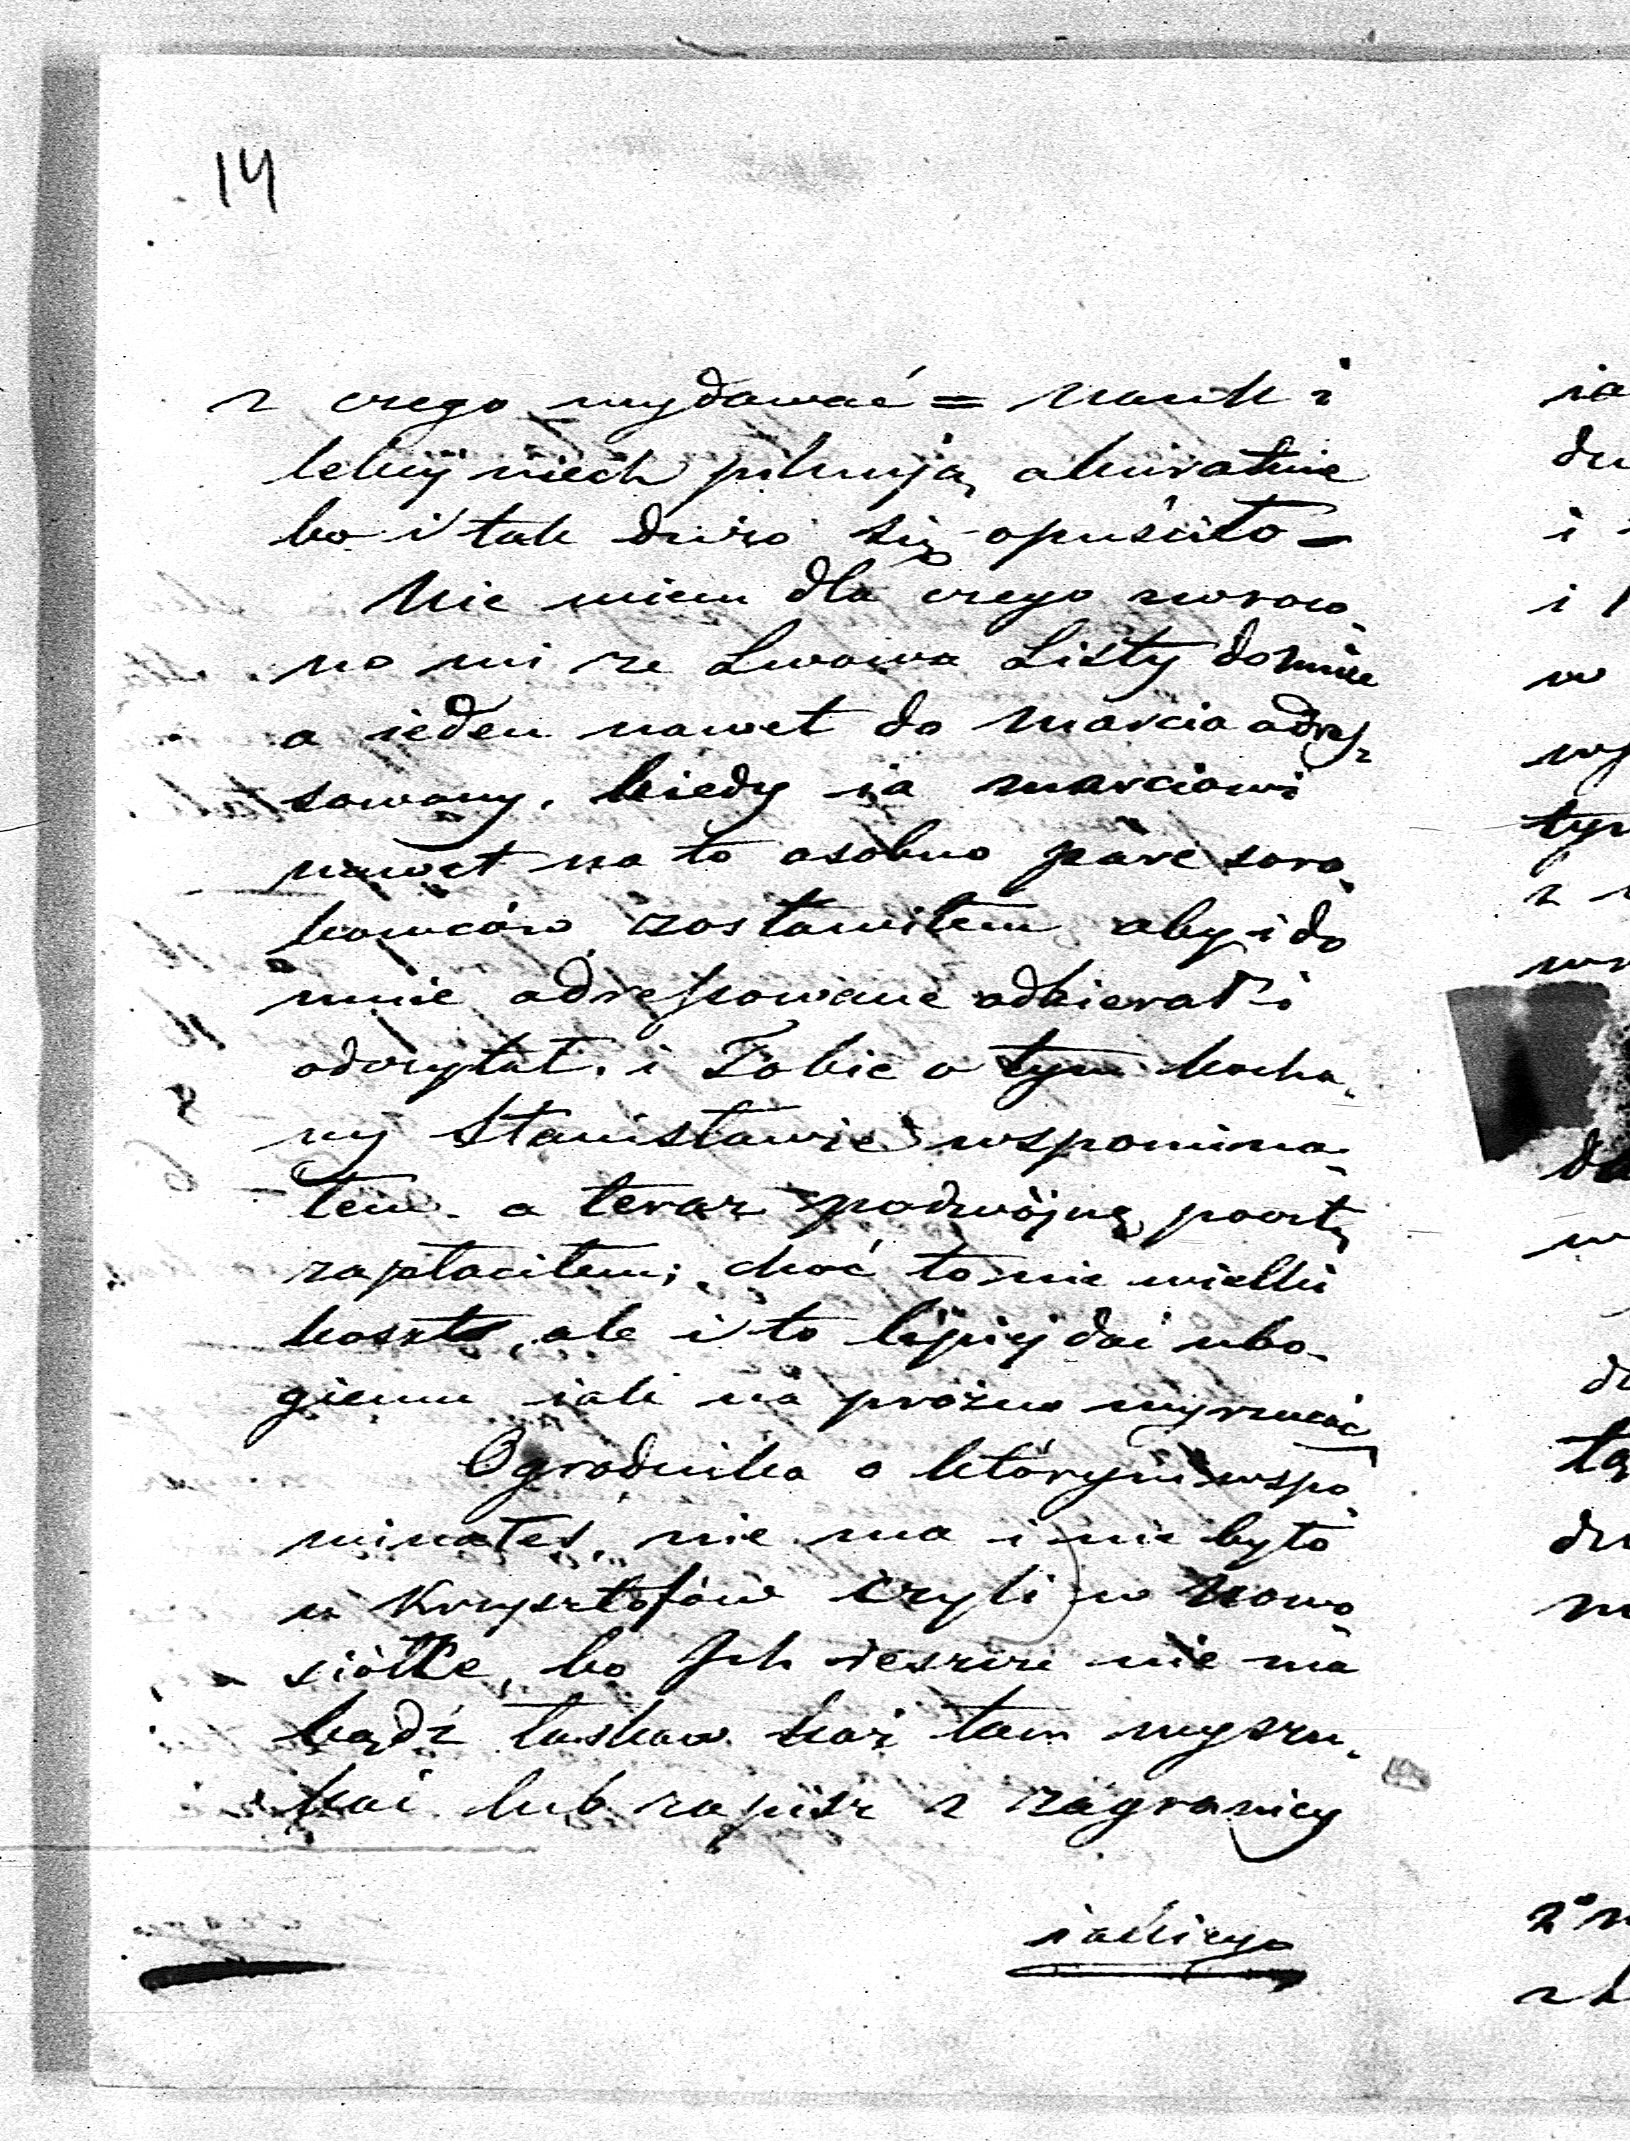 14
z czego wydawać = Nauk i
lekcÿ niech pilnują akuratnie
bo i tak dużo się opuściło =
Nie wiem dla czego zwroco,
no mi ze Lwowa Listy do mnie
a ieden nawet do Marcia adres,
sowany, kiedy ia Marciowi
nawet na to osobno pare soro,
kowców zostawiłem aby i do
mnie adressowane odbierał i
odczytał. i Tobie o tym kocha,
ny Stanisławie wspomina,
łem. a teraz podwójną pocztę
zapłaciłem; choć to nie wielki
koszt, ale i to lepiej dai ubo,
giemu iak na prożno wyrzucać
Ogrodnika o którym wspo,
minałeś, nie ma i nie było
w Krzysztofów czyli w Nowo,
siółke, bo Ich ieszcze nie ma
bądź łaskaw każ tam wyszu,
kai lub zapisz z zagranicy
iakiego